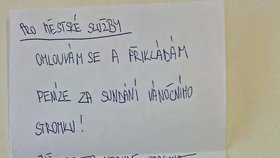 PRO MĚSTSKÉ SLUŽBY
OMLOUVÁM SE A PŘIKLÁDÁM
PENÍZE ZA SUNDÁNÍ VÁNOČNÍHO
STROMKU!